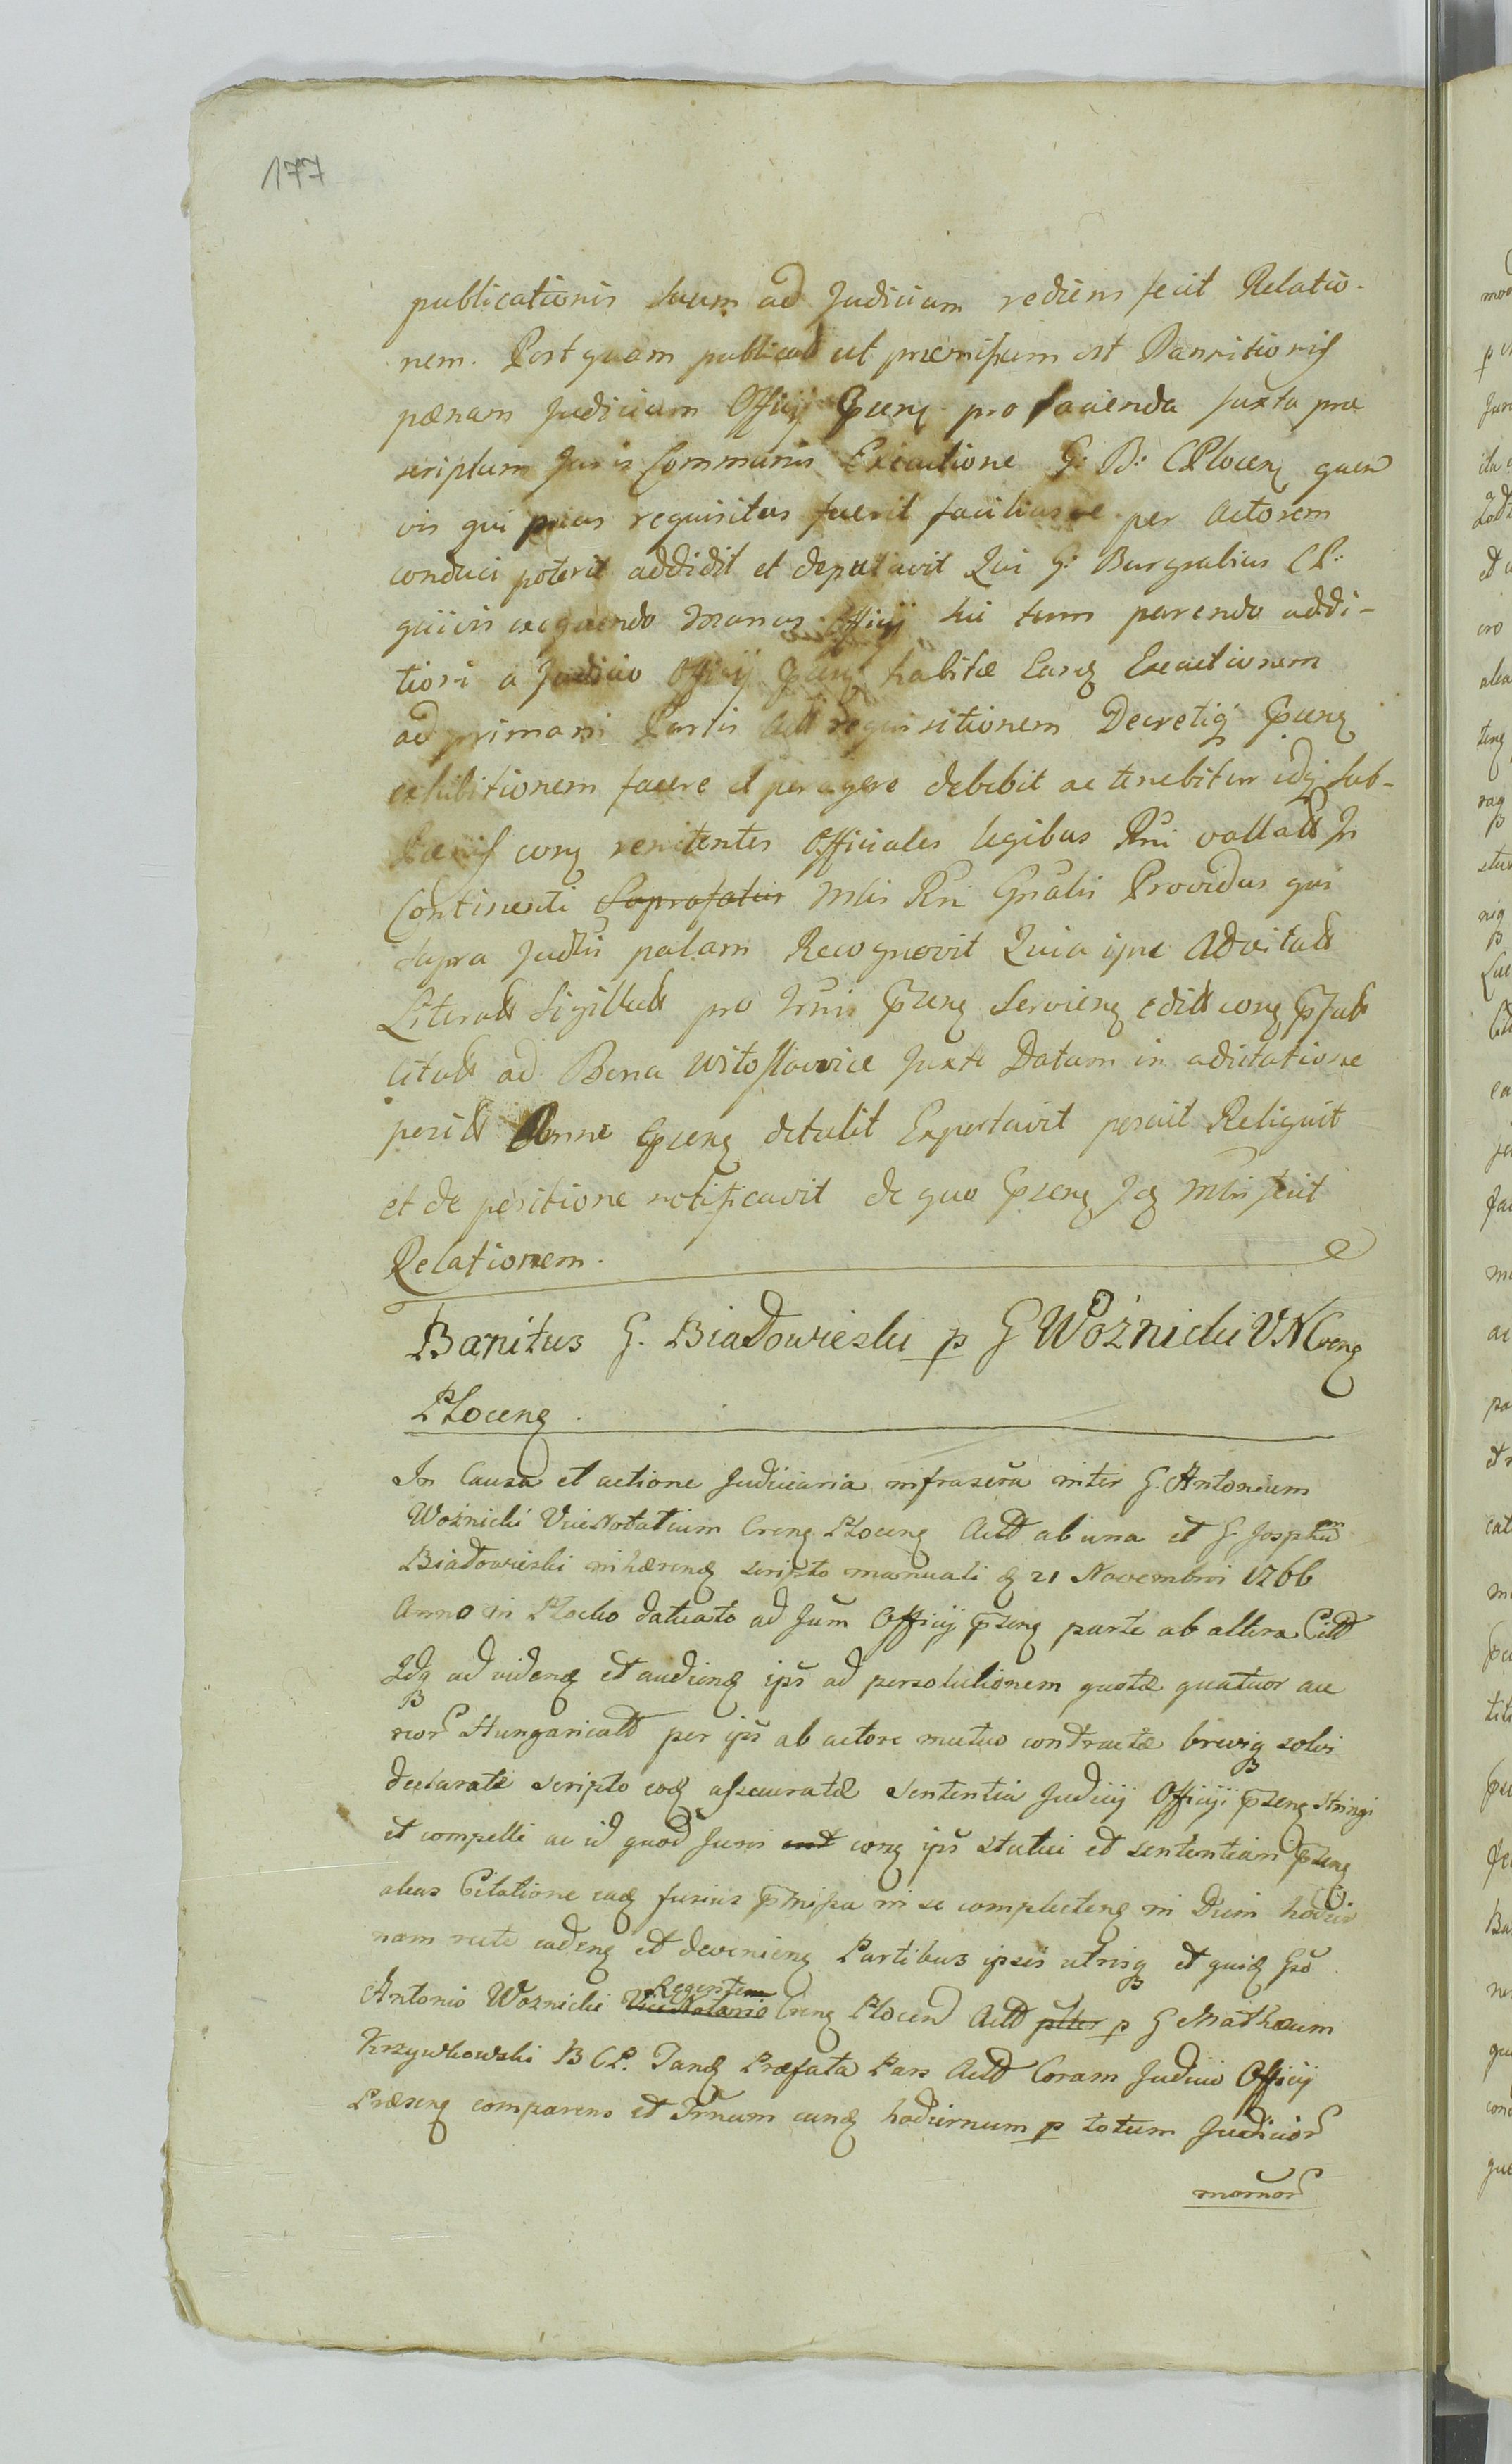 177
publicationis suum ad Judicium rediens fecit Relatio-
nem. Post quam publicat ut præmissum est Bannitionis
pænam Judicium Officij Præsenq pro facienda juxta præ
scriptum Juris Communis Executione G: B: C Plocenq quem
vis qui prius requisitus fuerit faciliusve per Actorem
conduci poterit addidit et deputavit Qui G: Burgrabius CP:
quivis exequendo munus Officij sui tum parendo addi-
tioni a Judicio Officij Præsenq habitæ Eanq Executionem
ad primam Partis Act requisitionem Decretiq Præsenq
exhibitionem facere et peragere debebit ac tenebitur idq sub
pænis conq renitentes Officiales legibus Rni vallatis In
Continenti Suprafatus Mlis Rni Gnalis Providus qui
supra Judtii palam Recognovit Quia ipse Advitatis
Literatis Sigillatis pro Trnis Præsenq Servienq edit conq
citatis ad Bona Witosławice Juxta Datum in adictatione
posit Anno Præsenq detulit Exportavit posuit Reliquit
et de positione notificavit de quo Præsenq Jq Mlis fecit
Relationem.
Banitus G. Biadowieski p G Woźnicki VNCrenq
Plocenq.
In Causa et actione Judiciaria infrascra inter G. Antonium
Woźnicki ViceNotarium Crenq Plocenq Actt ab una et G Josphum
Biadowieski inhærenq scripto manuali q 21 Novembris 1766
Anno in Plocko datuato ad Jum Officij Præsenq parte ab altera Citt
Idq ad videnq et audienq ips ad persolutionem quotæ quatuor au
reor Hungaricatt per ips ab actore mutuo contractæ brevıq solvi
declaratæ scripto eoq assecuratæ Sententia Judicij Officij Præsenq stringi
et compelli ac id quod Juris conq ips statui et sententiari Præsenq
alias Citatione eaq fusius Pmissa in se complectenq in Diem hodier
nam recte cadenq et devenienq Partibus ipsis utrisq et quiq Gso
Antonio Woznicki ViceNotario Regentem Crenq Plocen Actt plter p G Mathæum
Krzywkowski B C P. Tanq Præfata Pars Actt Coram Judicio Officij
Præsenq comparens et Trnum eunq hodiernum p totum Judicior
momor